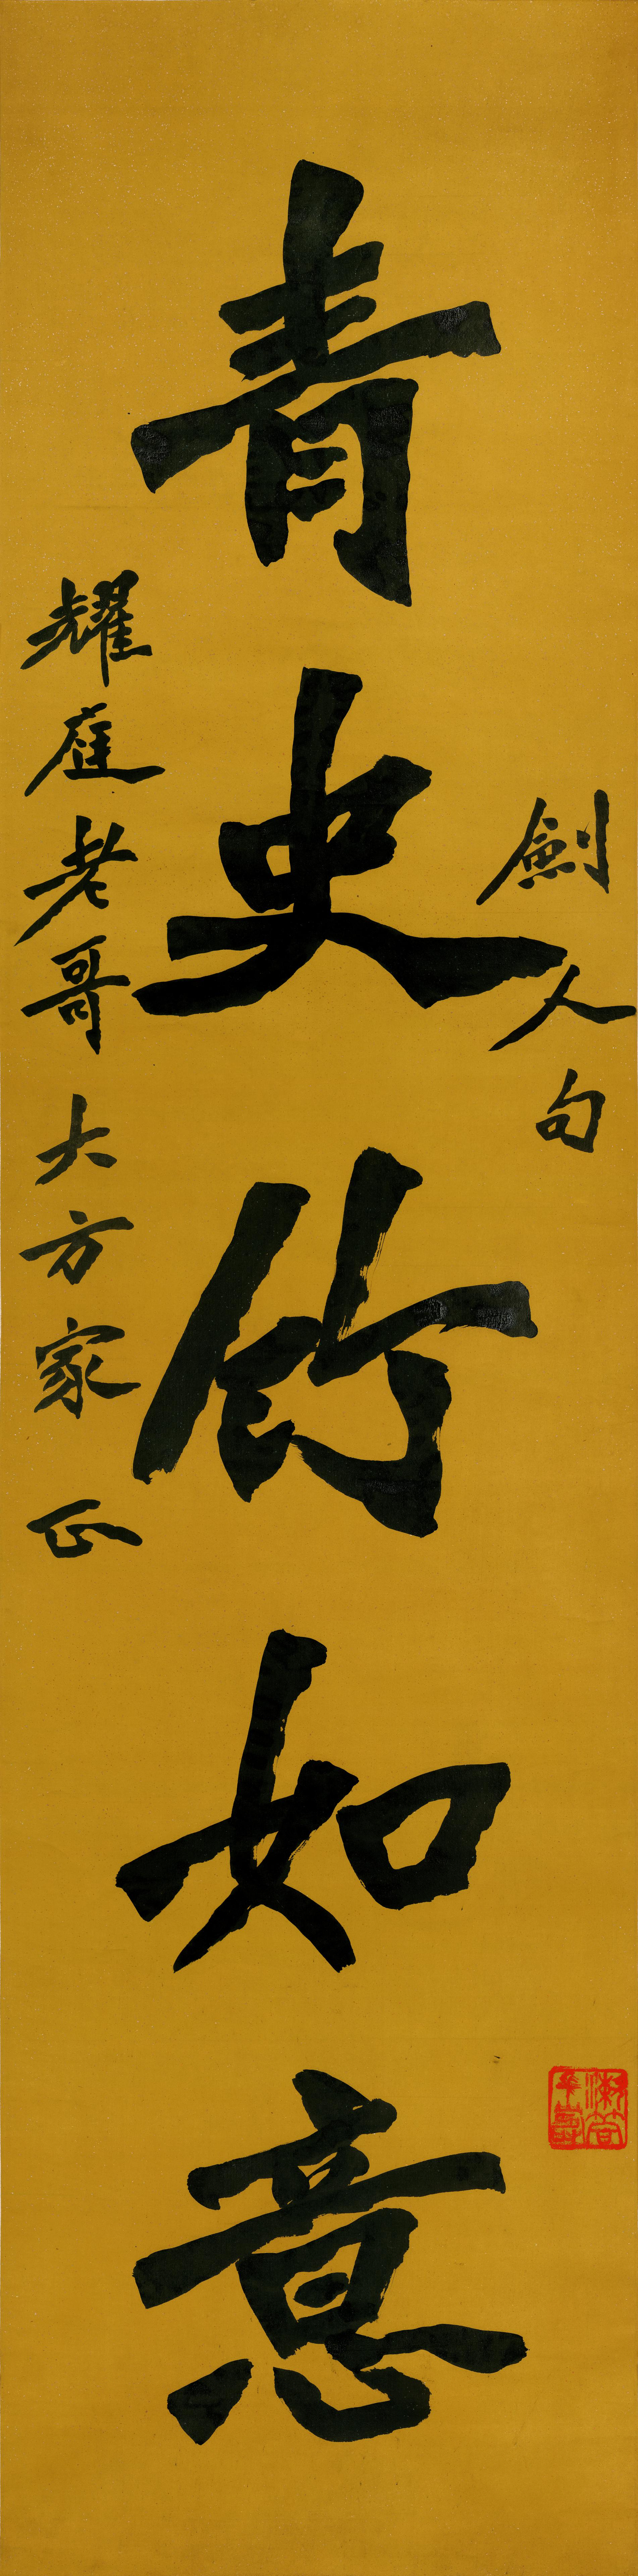 劍人句
青史竹如意
耀庭老哥大方家正